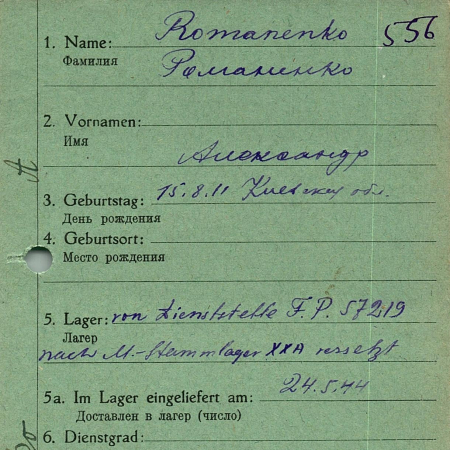 Romanenko 556
1. Name:
Фамилия Романенко
2. Vornamen:
Имя
Александр
3. Geburtstag: 15.8.11 Киевская обл.
День рождения
4. Geburtsort:
Место рождения
5. Lager: von Dienststelle F.P. 57219
Лагер
nach M.-Stammlager XXA versetzt
5a. Im Lager eingeliefert am: 24.5.44
Доставлен в лагер (число)
6. Dienstgrad: